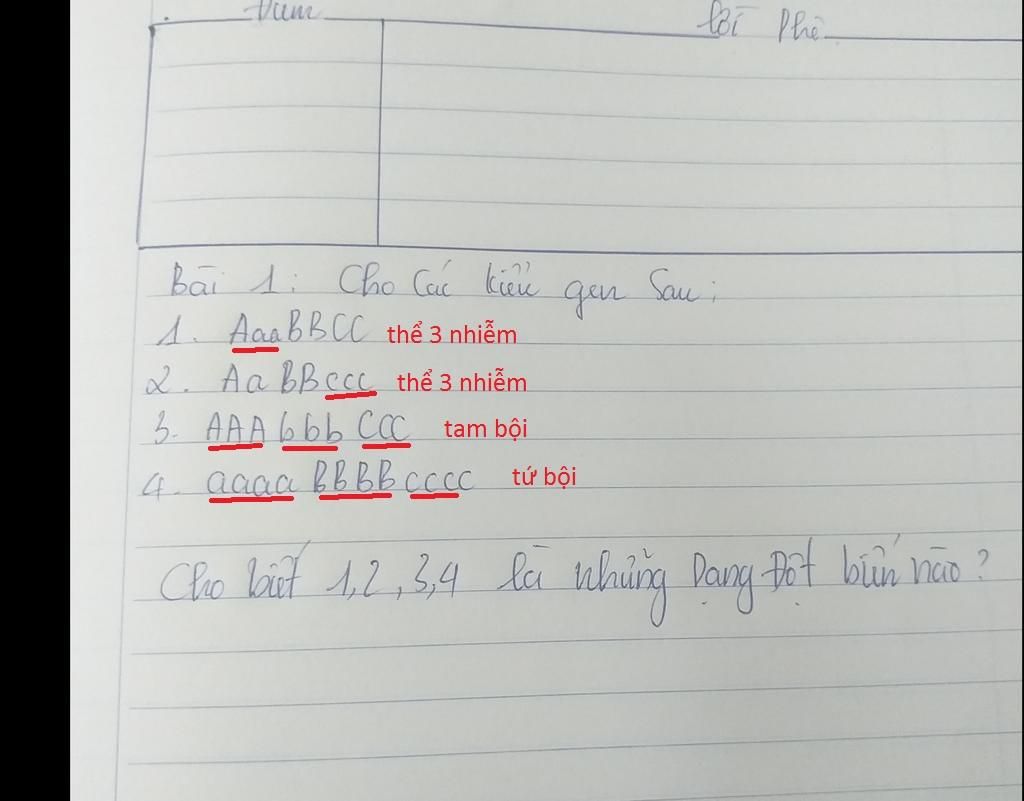 Điểm Lời Phê
Bài 1: Cho Các kiểu gen Sau:
1. AaaBBCC thể 3 nhiễm
2. Aa BB ccc thể 3 nhiễm
3. AAA bbb CCC tam bội
4. aaaa BBBB cccc tứ bội
Cho biết 1,2,3,4 là những Dạng Đột biến nào?